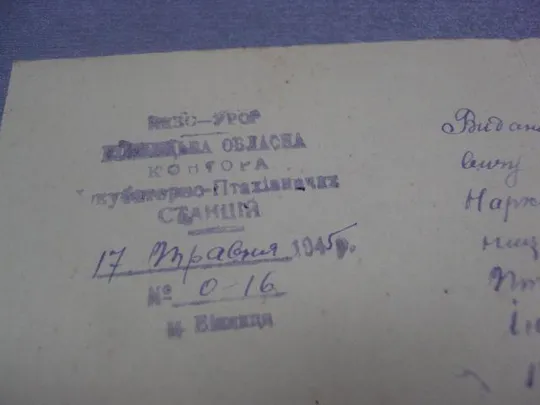 НКЗС—УРСР
ВІННИЦЬКА ОБЛАСНА
КОНТОРА
Інкубаторно-Птахівничих
СТАНЦІЙ
17 Травня 1945р.
№ 0-16
м. Вінниця
Видан
вищу
Нарк
ниц